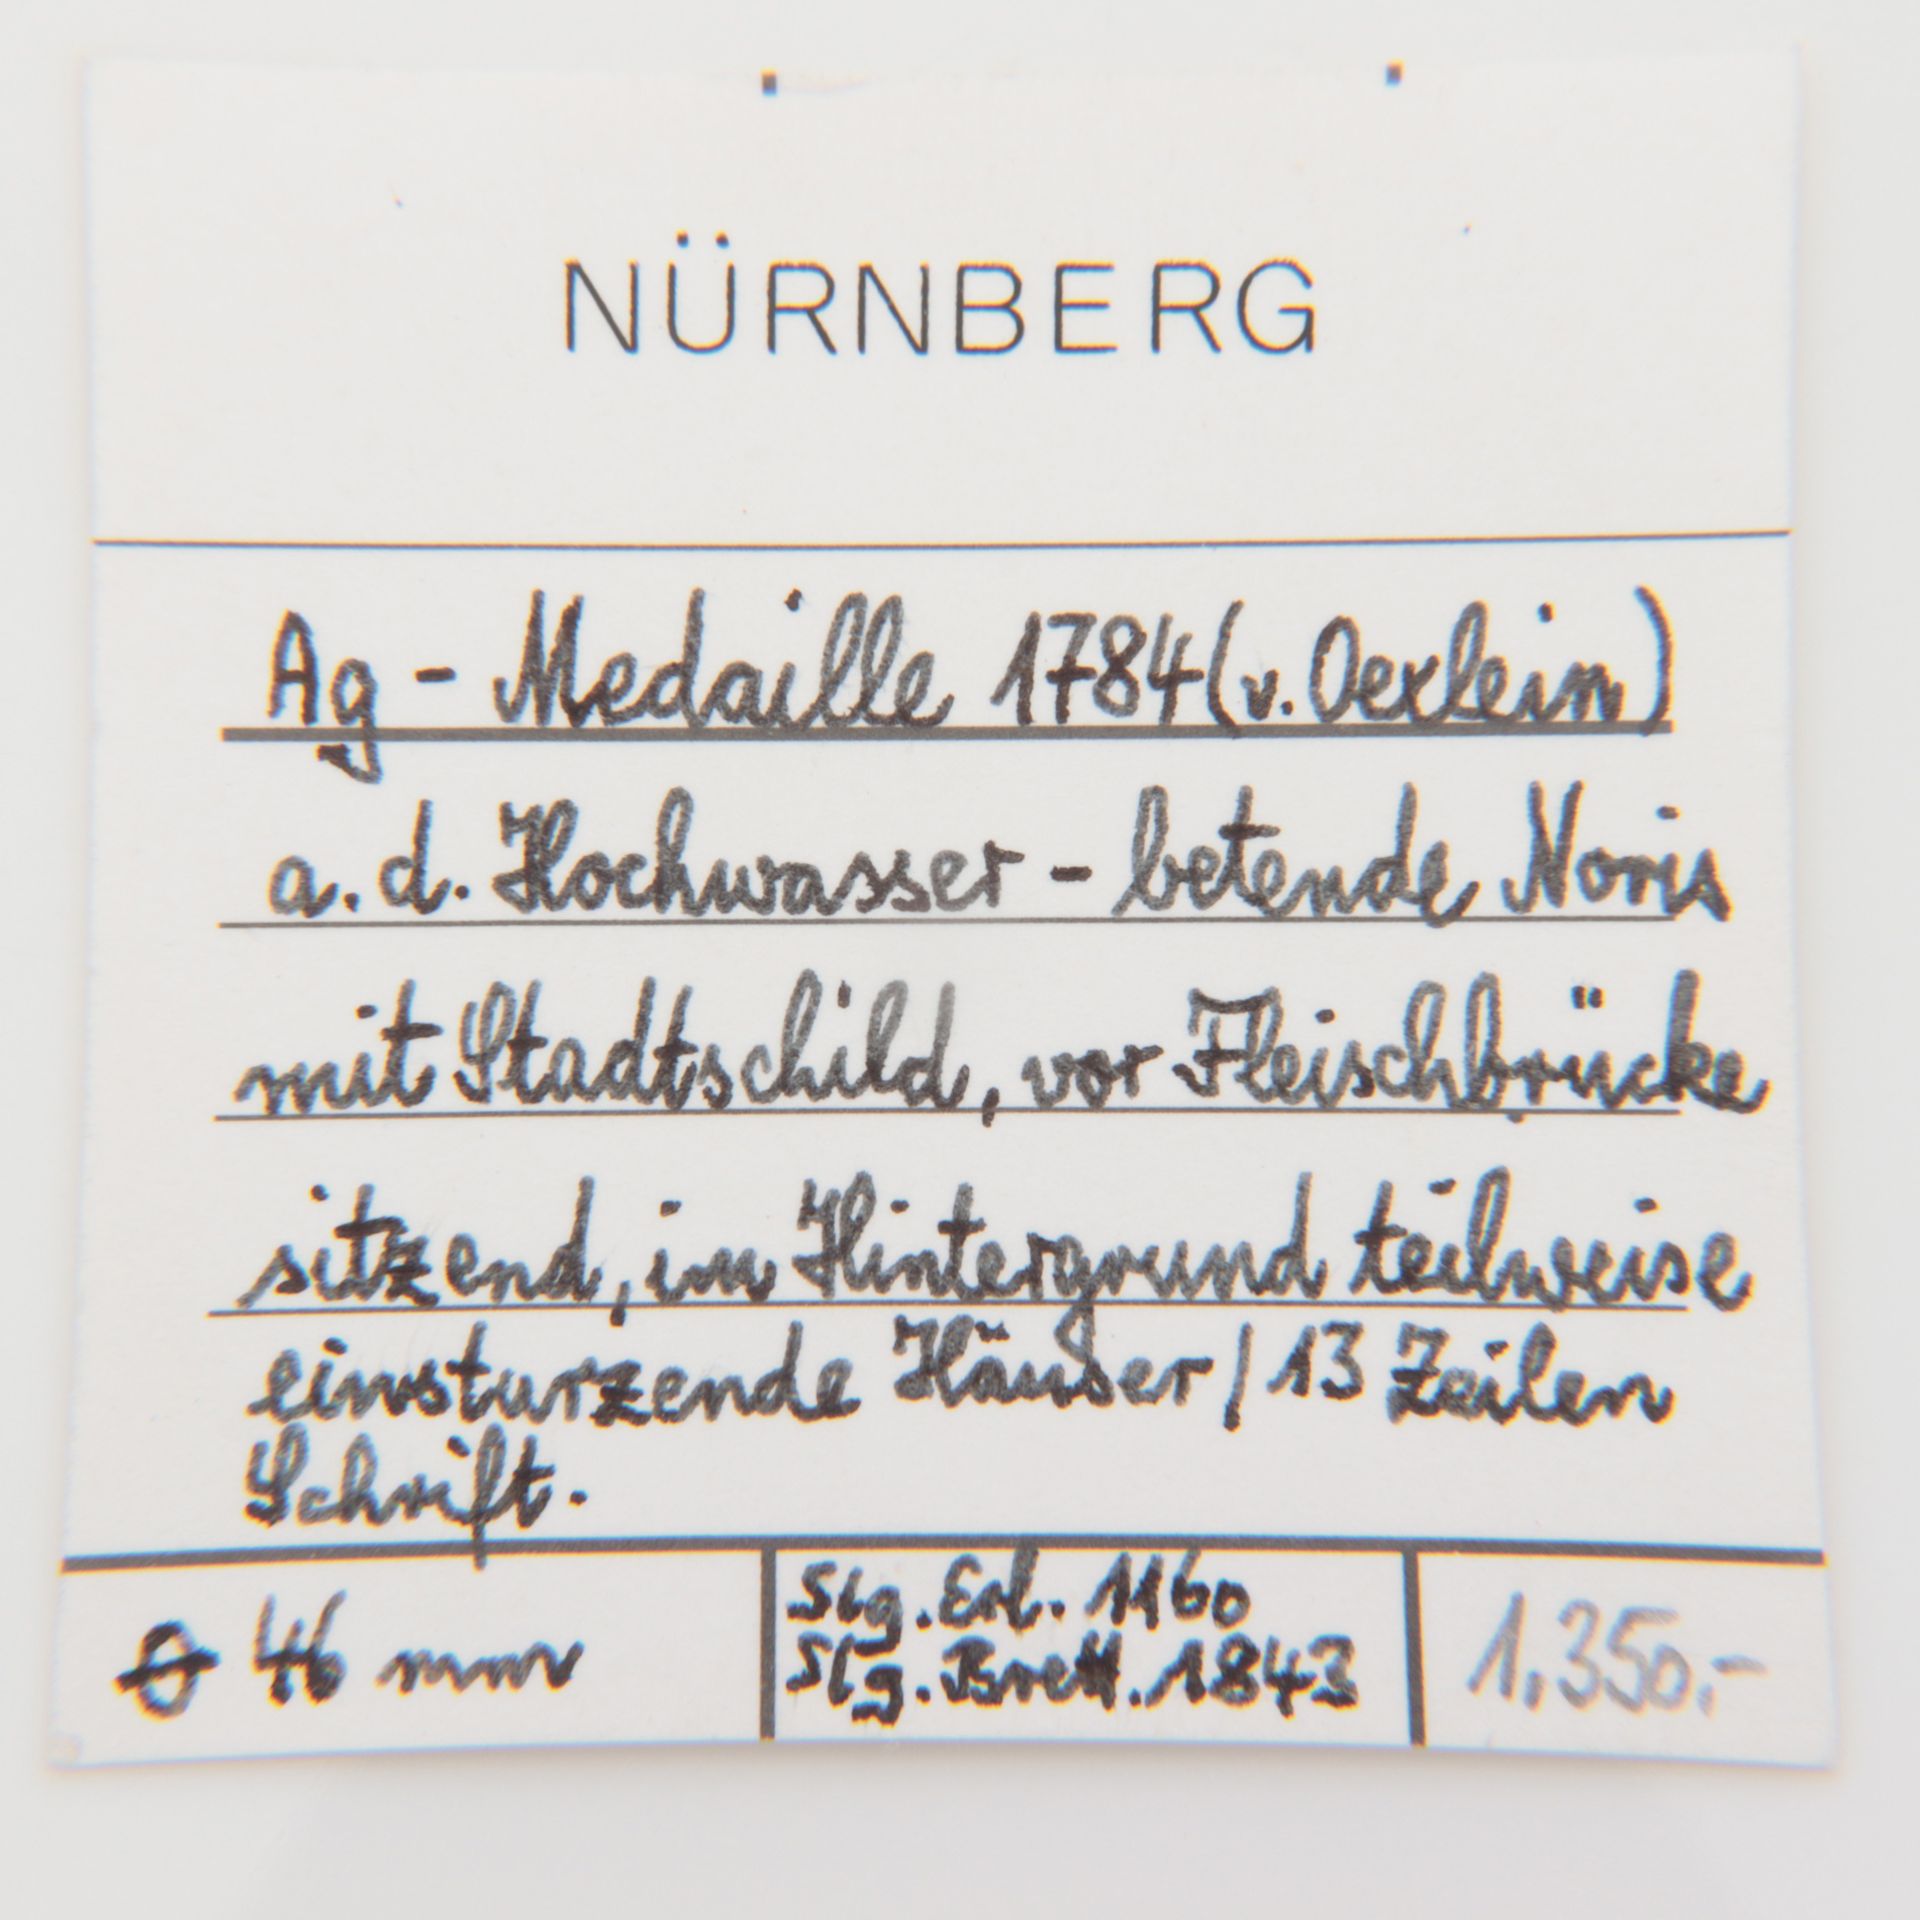 NÜRNBERG
Ag - Medaille 1784 (v. Oexlein)
a. d. Hochwasser - betende Noris
mit Stadtschild, vor Fleischbrücke
sitzend, im Hintergrund teilweise
einsturzende Häuser / 13 Zeilen
Schrift.
Ø 46 mm
Slg. Erl. 1160
Slg. Brett. 1843
1.350.-